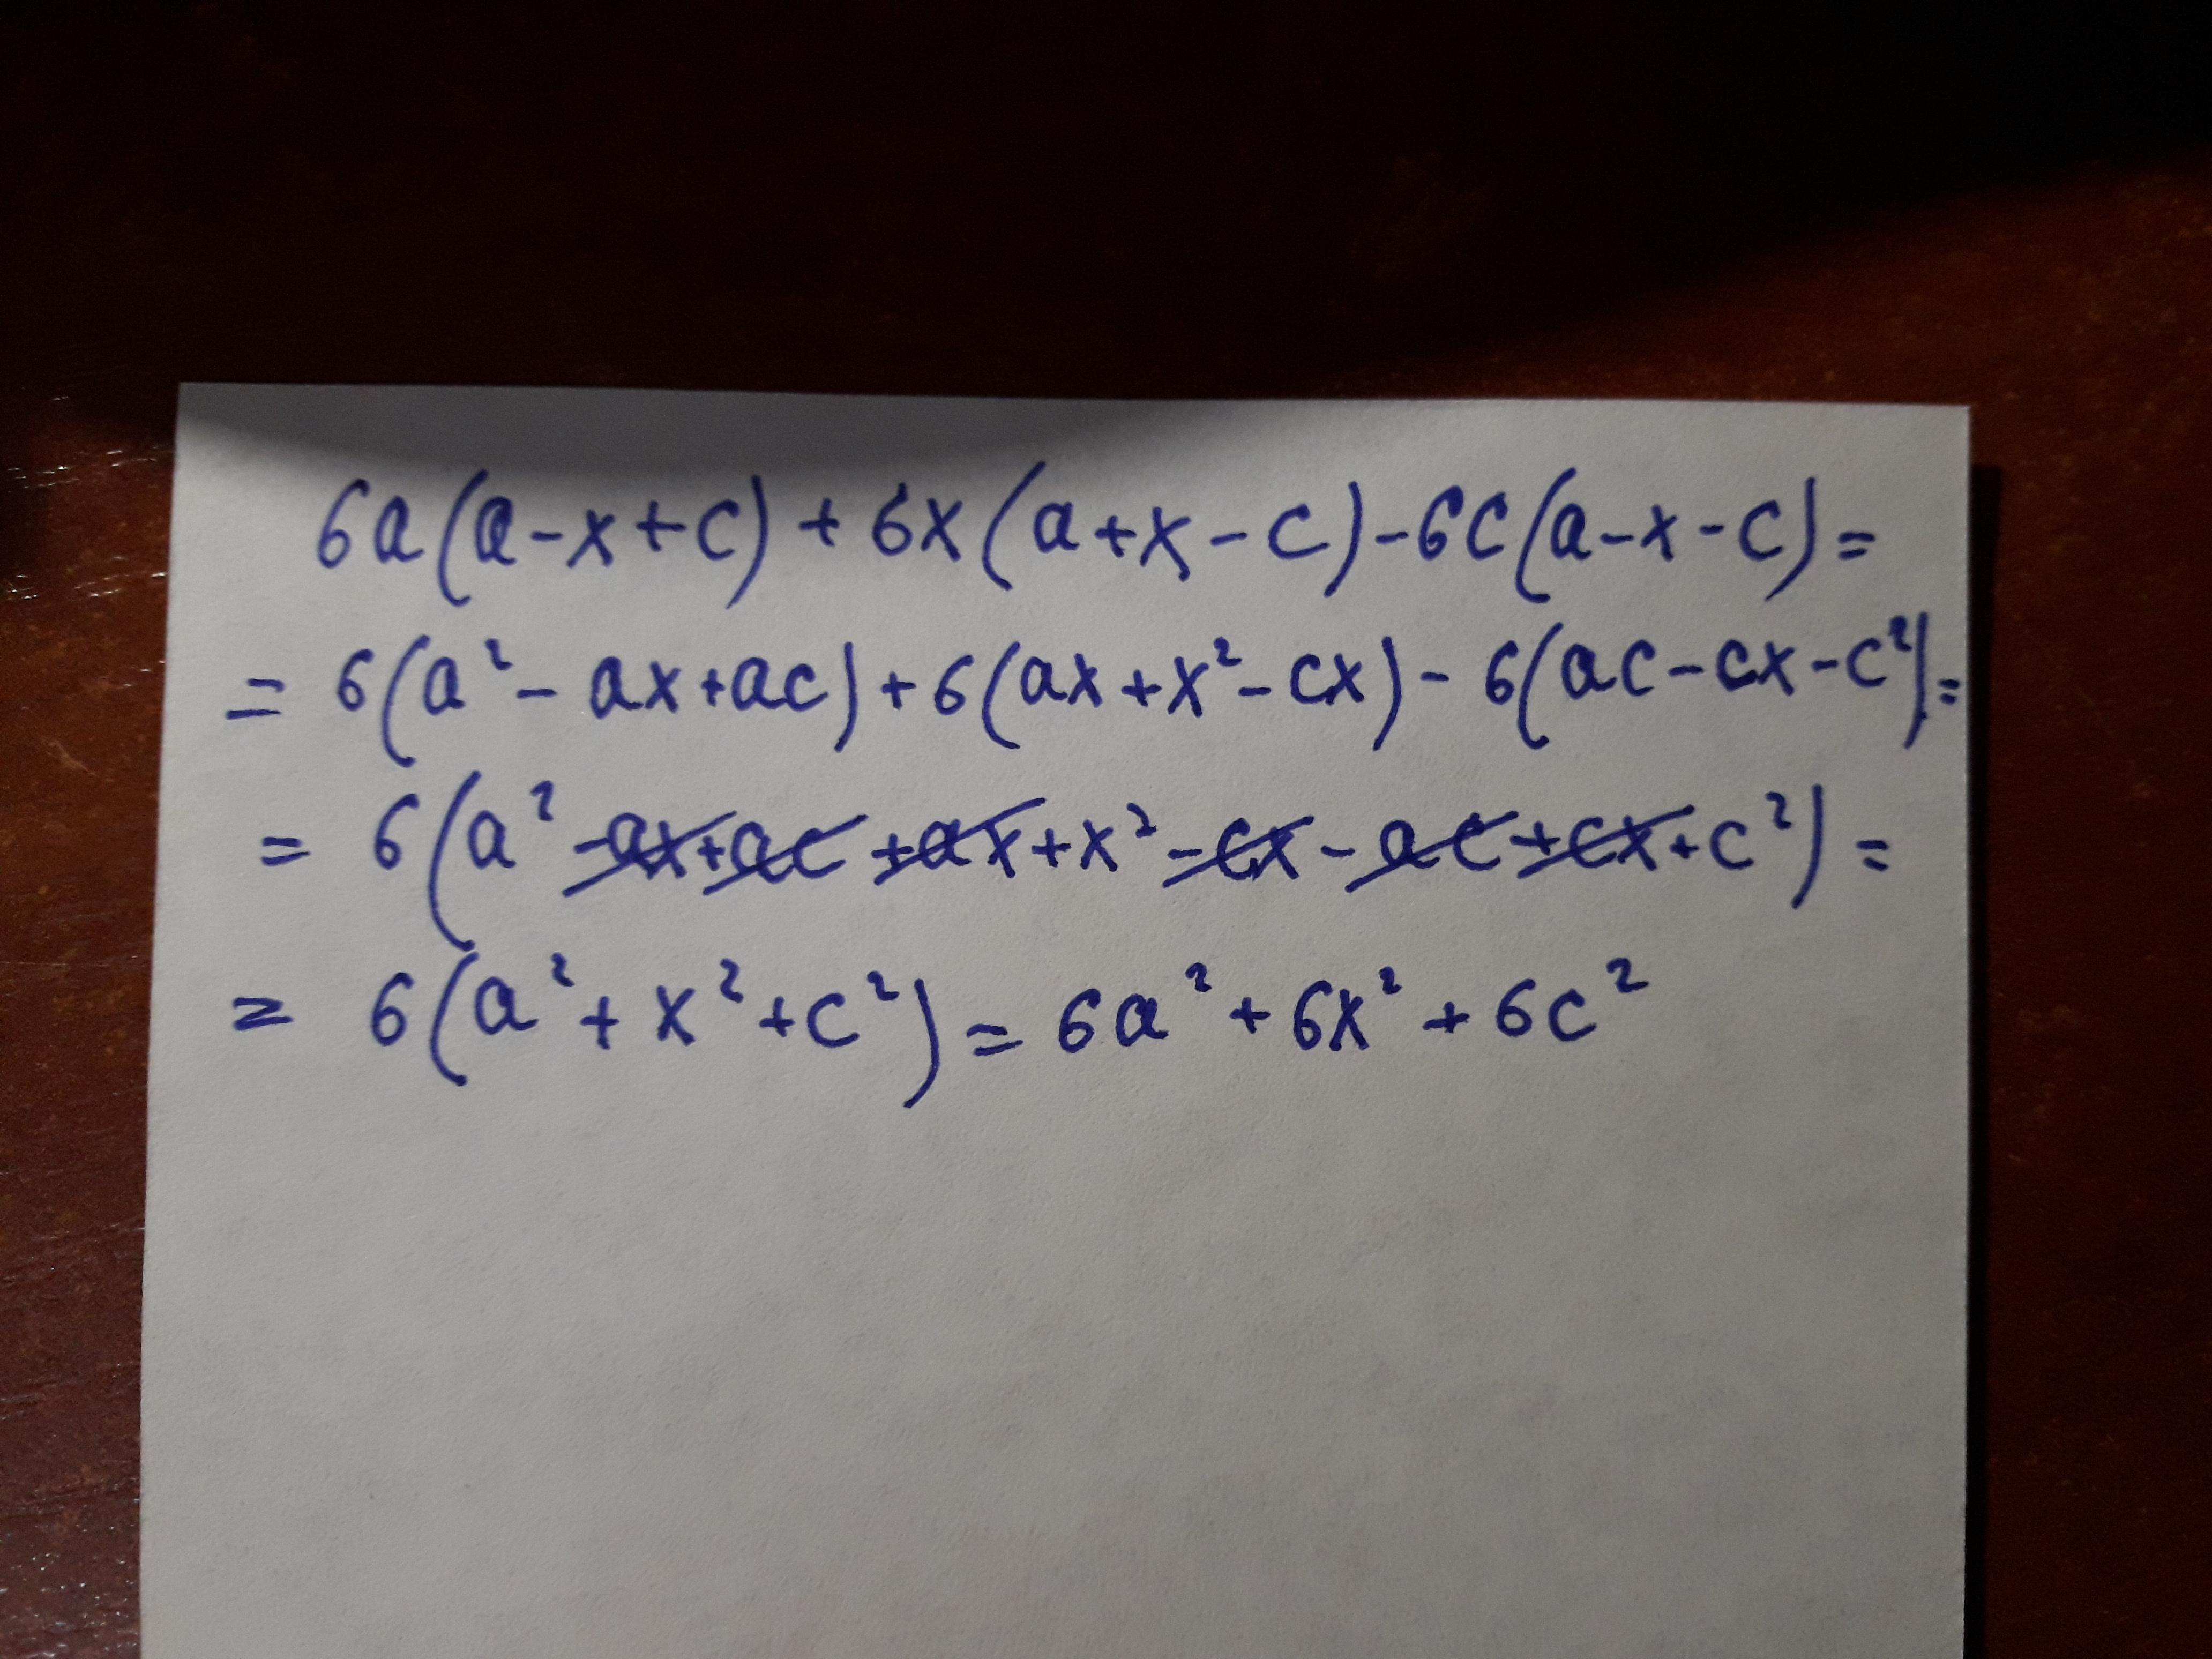 6a(a-x+c)+6x(a+x-c)-6c(a-x-c)=
=6(a²-ax+ac)+6(ax+x²-cx)-6(ac-cx-c²)=
=6(a²-ax+ac+ax+x²-cx-ac+cx+c²)=
=6(a²+x²+c²)=6a²+6x²+6c²